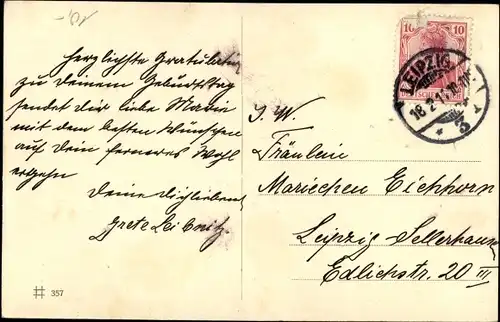 Herzlichste Gratulation
zu Deinem Geburtstag
sendet dir liebe Marie
mit dem besten Wünschen
auf Dein ferneres Wohl
ergehn
Deine Dichliebende
Grete
# 357
10 10
LEIPZIG
18.2.
* 3
I. W.
Fräulein
Mariechen Eichhorn
Leipzig Sellerhausen
Edlichstr. 20 III